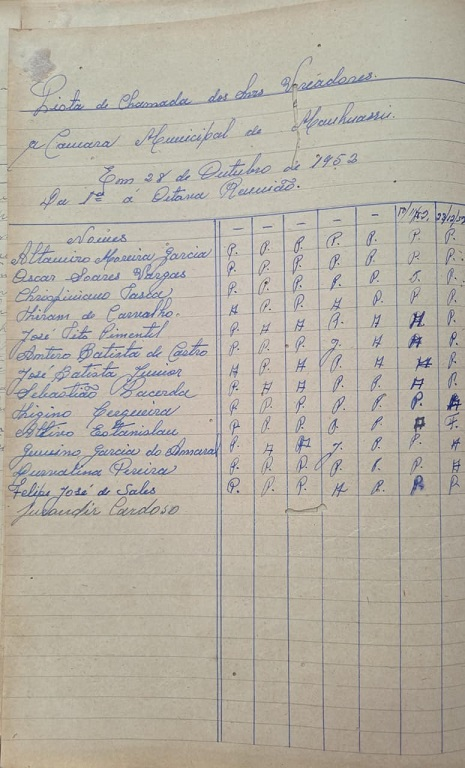 Lista de Chamada dos Snrs Vreadores.
a Camara Municipal de Manhuassú.
Em 28 de Outubro de 1952
Da 1ª á Oitava Reunião.
Nomes - - - - -
Altamiro Moreira Garcia P. P. P. P. P. P. P.
Oscar Soares Vargas P. P. P. P. P. P.
Chrispiniano P. P. P. P. P.
Hiram de Carvalho. A P. P. A P. P. P.
José Tito Pimentel P. A A P. A A P.
Antero Batista de Castro P. P. P. J. A A P.
José Batista Junior A P. A P. A A P.
Sebastião Lacerda P. A A P. P. A P.
Ligino Cerqueira P. P. P. P. P. P. A
Altivo Estanislau P. P. P. P. A F.
Juvsino Garcia do Amaral P. A A J. P. P. A
Durvalina Pereira P. P. P. P. P. P. A
Felipe José de Sales P. P. P. A P. P P
Jurandir Cardoso